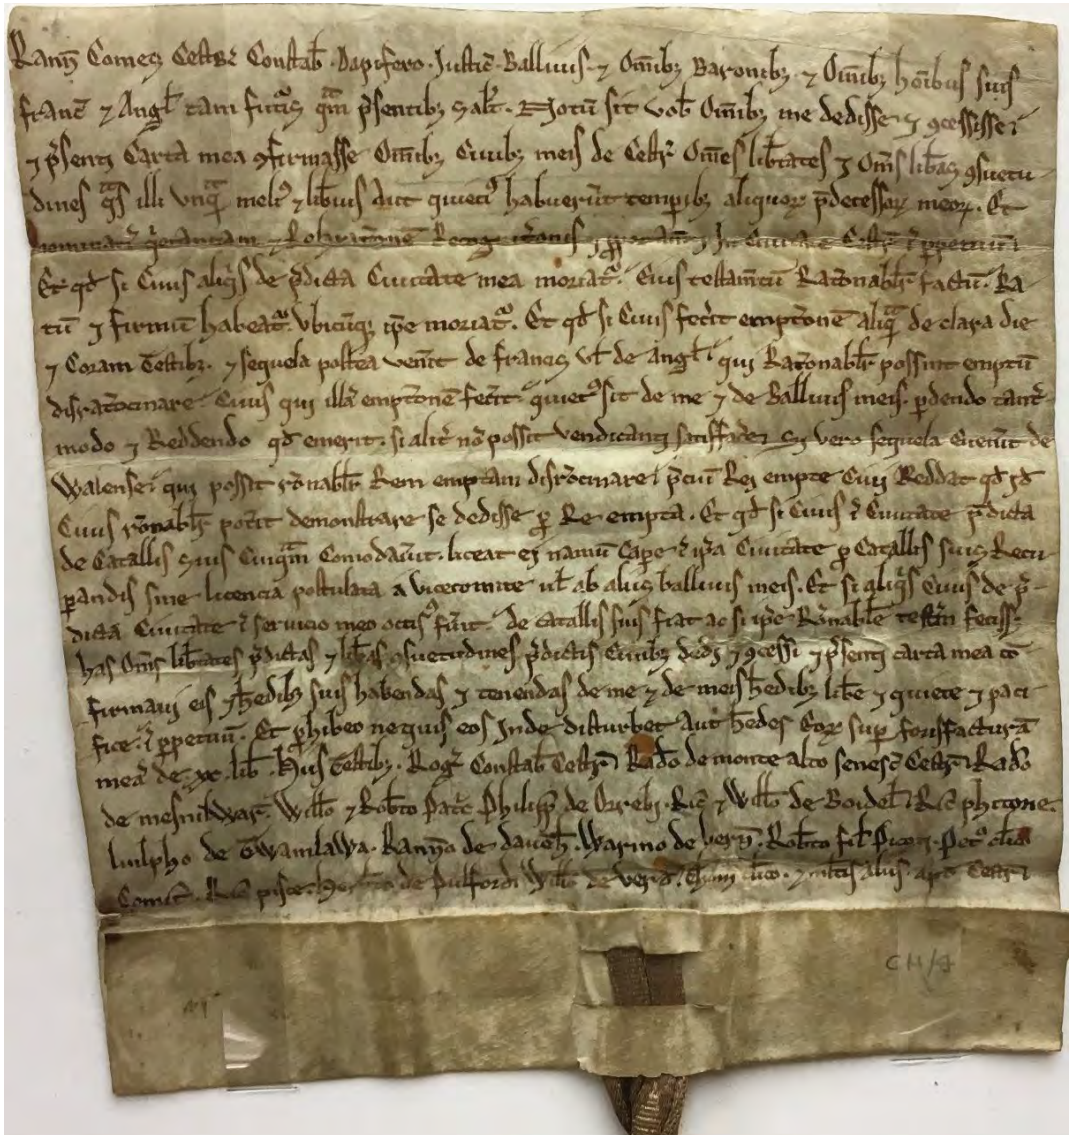 Rann̄ Comes Cestr̄ Constab̄ · Dapifero · Justic̄ · Ballivis · ⁊ Om̄ibȝ Baronibȝ · ⁊ Om̄ibȝ ho̅ibus suis
franc̄ ⁊ Angl̄ tam futuris qͣm p̄sentibȝ salt̄ · Notū sit vob̄ Om̄ibȝ me dedisse ⁊ ꝯcessisse
⁊ p̄senti Carta mea ꝯfirmasse Om̄ibȝ Civibȝ meis de Cestr̄ Om̄es lib̄tates ⁊ Om̄s lib̄as ꝯsuetu
dines qͣs illi unqͣ meli⁹ ⁊ lib̄ius Aut quieci⁹ habuer̄t temp̄ibȝ aliquoꝝ p̄decessoꝝ meoꝝ · Et
Et qd̄ si Civis aliqͥs de p̄dicta Civitate mea moriat᷑ · Eius testam̄tū Rac̄onabilr̄ factū · Ra
tū ⁊ firmū habeat᷑ Vbicūqȝ ip̄e moriat᷑ · Et qd̄ si Civis fec̄it empc̄onē aliqͣ de clara die
⁊ Coram Testibȝ · ⁊ sequela postea ven̄it de francis vl̄ de Angl̄ qui Rac̄onabilr̄ possint emptū
disrac̄ocinare · Civis qui illā empc̄onē fec̄it quiet⁹ sit de me ⁊ de Ballivis meis · p̱dendo tant̄
modo ⁊ Reddendo qd̄ emerit · si alit̄ nō possit vendicanti satisfac̄e Si vero sequela even̄it de
Walense qui possit rōnabilr̄ Rem emptam disrōcinare p̄ciū Rei empte Civi Reddet qd̄
Civis rōnabilr̄ pot̄it demonstrare se dedisse p̱ Re empta · Et qd̄ si Civis ī Civitate p̄dicta
de Catallis suis Cuiqͣm Comodav̄it · liceat ei namū Cap̱e ī ip̄a Civitate p̱ Catallis suis Recu
p̱andis sine licencia postulata a vicecomite ul̄ ab aliis ballivis meis · Et si aliqͥs Civis de p̄
dicta Civitate ī servicio meo occis⁹ fu̅it · de catallis suis fiat ac si ip̄e Rōnabile testm̄ feciss;
has Om̄s lib̄tates p̄dictas ⁊ lib̄as ꝯsuetudines p̄dictis Civibȝ dedi ⁊ ꝯcessi ⁊ p̄senti carta mea cō
firmavi eis ⁊ h̄edibȝ suis habendas ⁊ tenendas de me ⁊ de meis h̄edibȝ lib̄e ⁊ quiete ⁊ paci
fice ī p̱petuū · Et p̱hibeo ne quis eos Inde disturbet Aut h̄edes Eoꝝ sup̱ forisfacturā
meā de · xx · lib̄ · Hiis Testibȝ · Rog̅ Constab̄ Cestr̄ Rad̄o de monte alto senesc̄ Cestr̄ Rad̄o
de mesnilwar̄ · Will̄o ⁊ Rob̄to Patc̄ Philipp̄ de Orrebi · Ric̄ ⁊ Will̄o de Boidel̄ Ric̄ phitone
liulpho de Twamlawa · Rann̄o de daven̄ · Warino de vern̄ · Rob̄to fil̄ Picoti · Pet⁰ cl̄ico
Comit̄ · Ric̄ pisce · de Pulford Will̄o de verd̄ · cl̄ico · ⁊ mltis aliis · apd̄ Cestr̄
CH/7